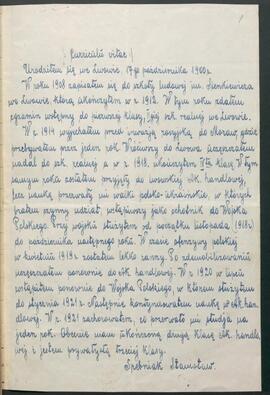 Curriculum vitae
Urodziłem się we Lwowie, 17go października 1900 r.
W roku 1908 zapisałem się do szkoły ludowej im. Sienkiewicza
we Lwowie, którą ukończyłem w r. 1912. W tym roku zdałem
egzamin wstępny do pierwszej klasy szkoły realnej we Lwowie.
W r. 1914 wyjechałem przed inwazją rosyjską do Moraw, gdzie
przebywałem przez jeden rok. Wróciwszy do Lwowa uczęszczałem
nadal do szk. realnej a w r. 1918. ukończyłem klasę. W tym
samym roku zostałem przyjęty do lwowskiej szk. handlowej,
lecz naukę przerwały mi walki polsko-ukraińskie, w których
brałem czynny udział wstąpiwszy jako ochotnik do Wojska
Polskiego. Przy wojsku służyłem od początku listopada (1918 r.)
do października następnego roku. W czasie ofenzywy polskiej
w kwietniu 1919 r. zostałem lekko ranny. Po zdemobilizowaniu
uczęszczałem ponownie do szk. handlowej. W r. 1920 w lipcu
wstąpiłem ponownie do Wojska Polskiego, w którem służyłem
do stycznia 1921 r. Następnie kontynuowałem naukę w szk. han-
dlowej. W r. 1921 zachorowałem, co przerwało mi studja na
jeden rok. Obecnie mam ukończoną drugą klasę szk. handlo-
wej i jestem prywatystą trzeciej klasy.
Stanisław